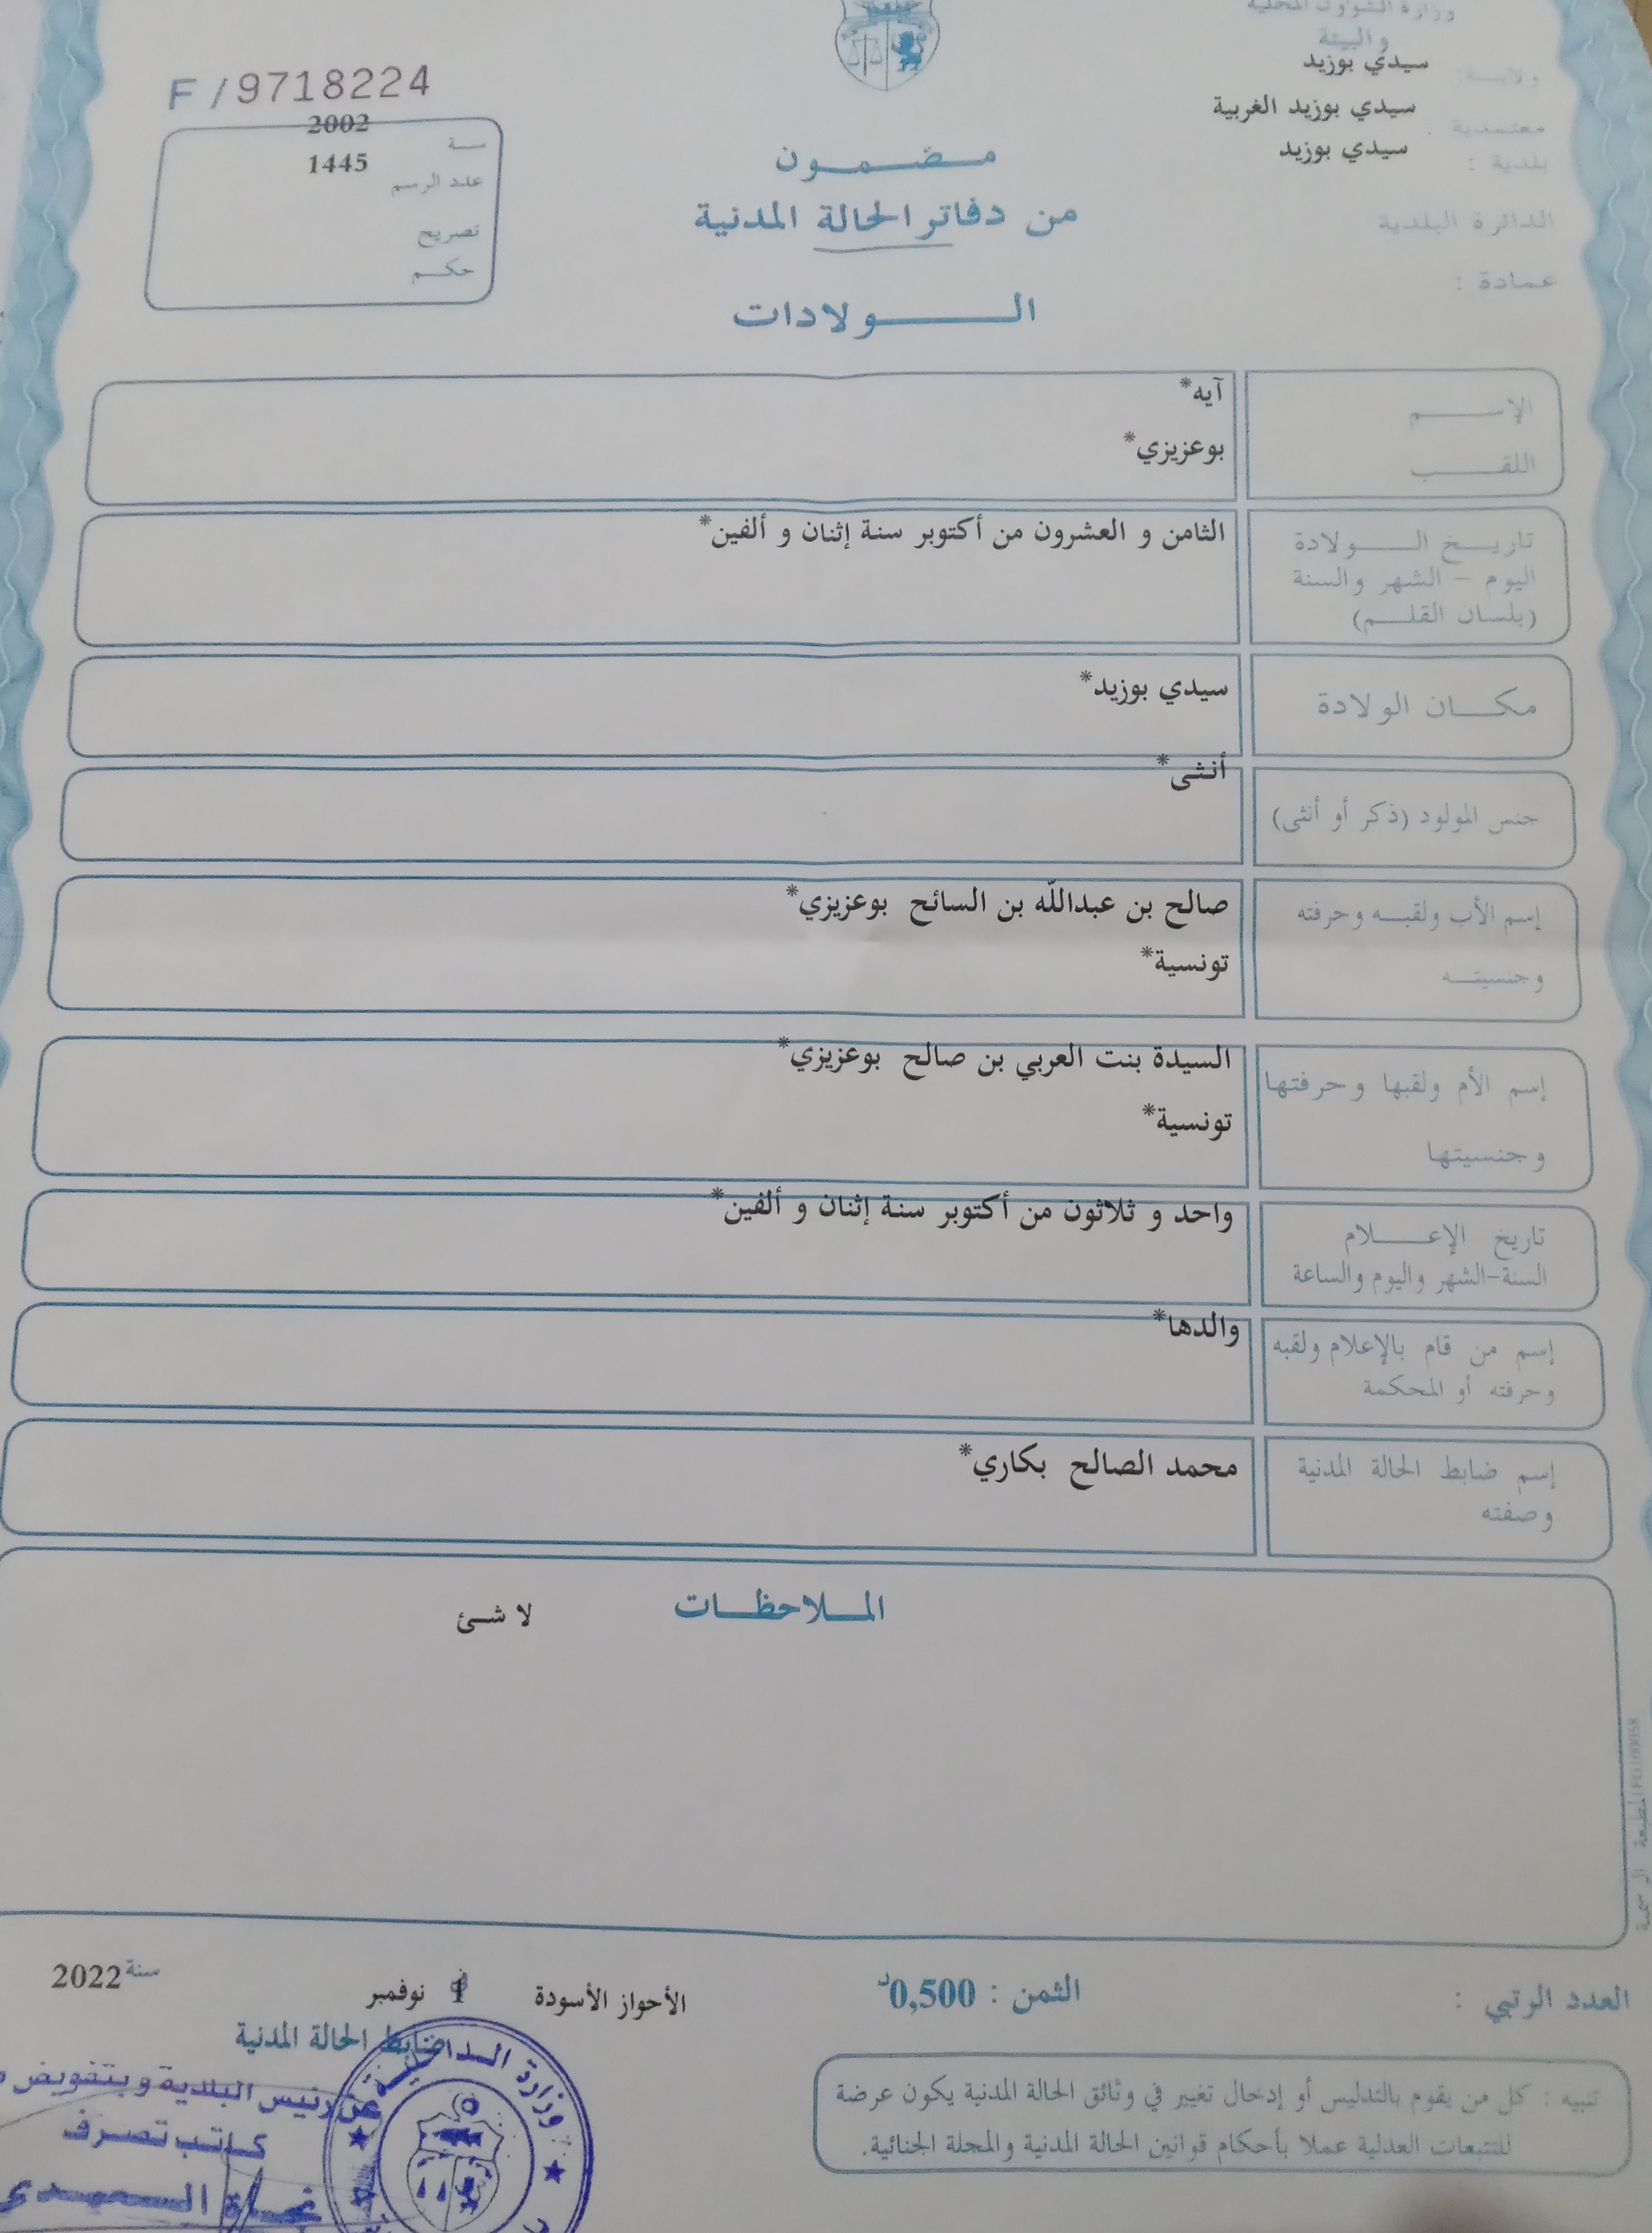 وزارة الشؤون المحلية
والبيئة
ولايـــة : سيدي بوزيد
معتمدية : سيدي بوزيد الغربية
بلدية : سيدي بوزيد
الدائرة البلدية
عمادة :
F / 9718224
سـنة 2002
عدد الرسم 1445
تصريح
حكـم
مـضـمـون
من دفاتر الحالة المدنية
الـــولادات
الإســـم آيه*
اللقـــب بوعزيزي*
تاريـخ الـــولادة الثامن و العشرون من أكتوبر سنة إثنان و ألفين*
اليوم – الشهر والسنة
(بلسان القلـم)
مكـــان الولادة سيدي بوزيد*
جنس المولود (ذكر أو أنثى) أنثى*
إسم الأب ولقبـه وحرفته صالح بن عبدالله بن السائح بوعزيزي*
وجنسيتـــه تونسية*
إسم الأم ولقبها وحرفتها السيدة بنت العربي بن صالح بوعزيزي*
وجنسيتها تونسية*
تاريخ الإعـــلام واحد و ثلاثون من أكتوبر سنة إثنان و ألفين*
السنة-الشهر واليوم والساعة
إسم من قام بالإعلام ولقبه والدها*
وحرفته أو المحكمة
إسم ضابط الحالة المدنية محمد الصالح بكاري*
وصفته
المـلاحظـات
لا شئ
المطبعة الرسمية
العدد الرتبي :
الثمن : 0,500د
الأحواز الأسودة 1 نوفمبر سنة 2022
ضابط الحالة المدنية
عن رئيس البلدية وبتفويض
كاتب تصرف
نجاة السعيدي
وزارة الداخلية
تنبيه : كل من يقوم بالتدليس أو إدخال تغيير في وثائق الحالة المدنية يكون عرضة
للتتبعات العدلية عملا بأحكام قوانين الحالة المدنية والمجلة الجنائية.